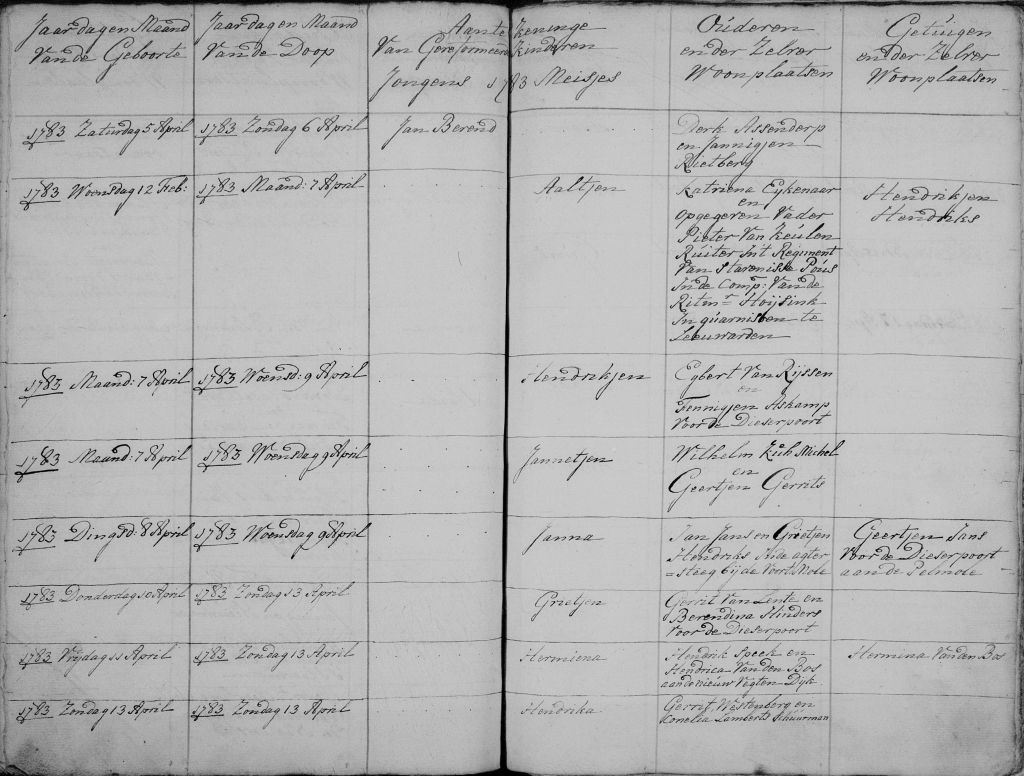 Jaar dagen Maand
Van de Geboorte
Jaar dagen Maand
Van de Doop
Aante keninge
Van Gereformeerde kinderen
Jongens 1783 Meisjes
Ouderen
en der Zelver
Woonplaatsen
Getuigen
en der Zelver
Woonplaatsen
1783 Zaturdag 5 April
1783 Zondag 6 April
Jan Berend
Derk Assendorp
en Jannigjen
Rietberg
1783 Woensdag 12 Feb:
1783 Maand: 7 April
Aaltjen
Katriena Eykenaar
en
Opgegeven Vader
Pieter Van Keulen
Ruiter Int Regiment
Van Stavenisse Pous
In de Comp: Van de
Ritmr Hoijsink
In guarnisoen te
Leeuwarden
Hendrikjen
Hendriks
1783 Maand: 7 April
1783 Woensd: 9 April
Hendrikjen
Egbert Van Rijssen
en
Fennigjen Askamp
Voor de Dieserpoort
1783 Maand: 7 April
1783 Woensdag 9 April
Jannetjen
Wilhelm
en
Geertjen Gerrits
1783 Dingsd: 8 April
1783 Woensdag 9 April
Janna
Jan Jansen en Grietjen
Hendriks Inde agter
=steeg bij de Voorts Mole
Geertjen Jans
Voor de Dieserpoort
aan de Pelmole
1783 Donderdag 10 April
1783 Zondag 13 April
Grietjen
Gerrit Van Lente en
Berendina Hinders
Voor de Dieserpoort
1783 Vrijdag 11 April
1783 Zondag 13 April
Hermiena
Hendrik Speek en
Hendrica Van den Bos
aan de nieuw Vegten Dijk
Hermina Van den Bos
1783 Zondag 13 April
1783 Zondag 13 April
Hendrika
Gerrit Westenberg en
Cornelia Lamberts Schuurman